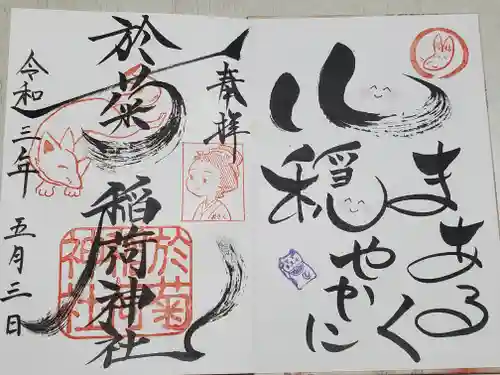 心
まあるく
穏やかに
奉拝
於菊稲荷神社
令和三年五月三日
於菊
稲荷
神社